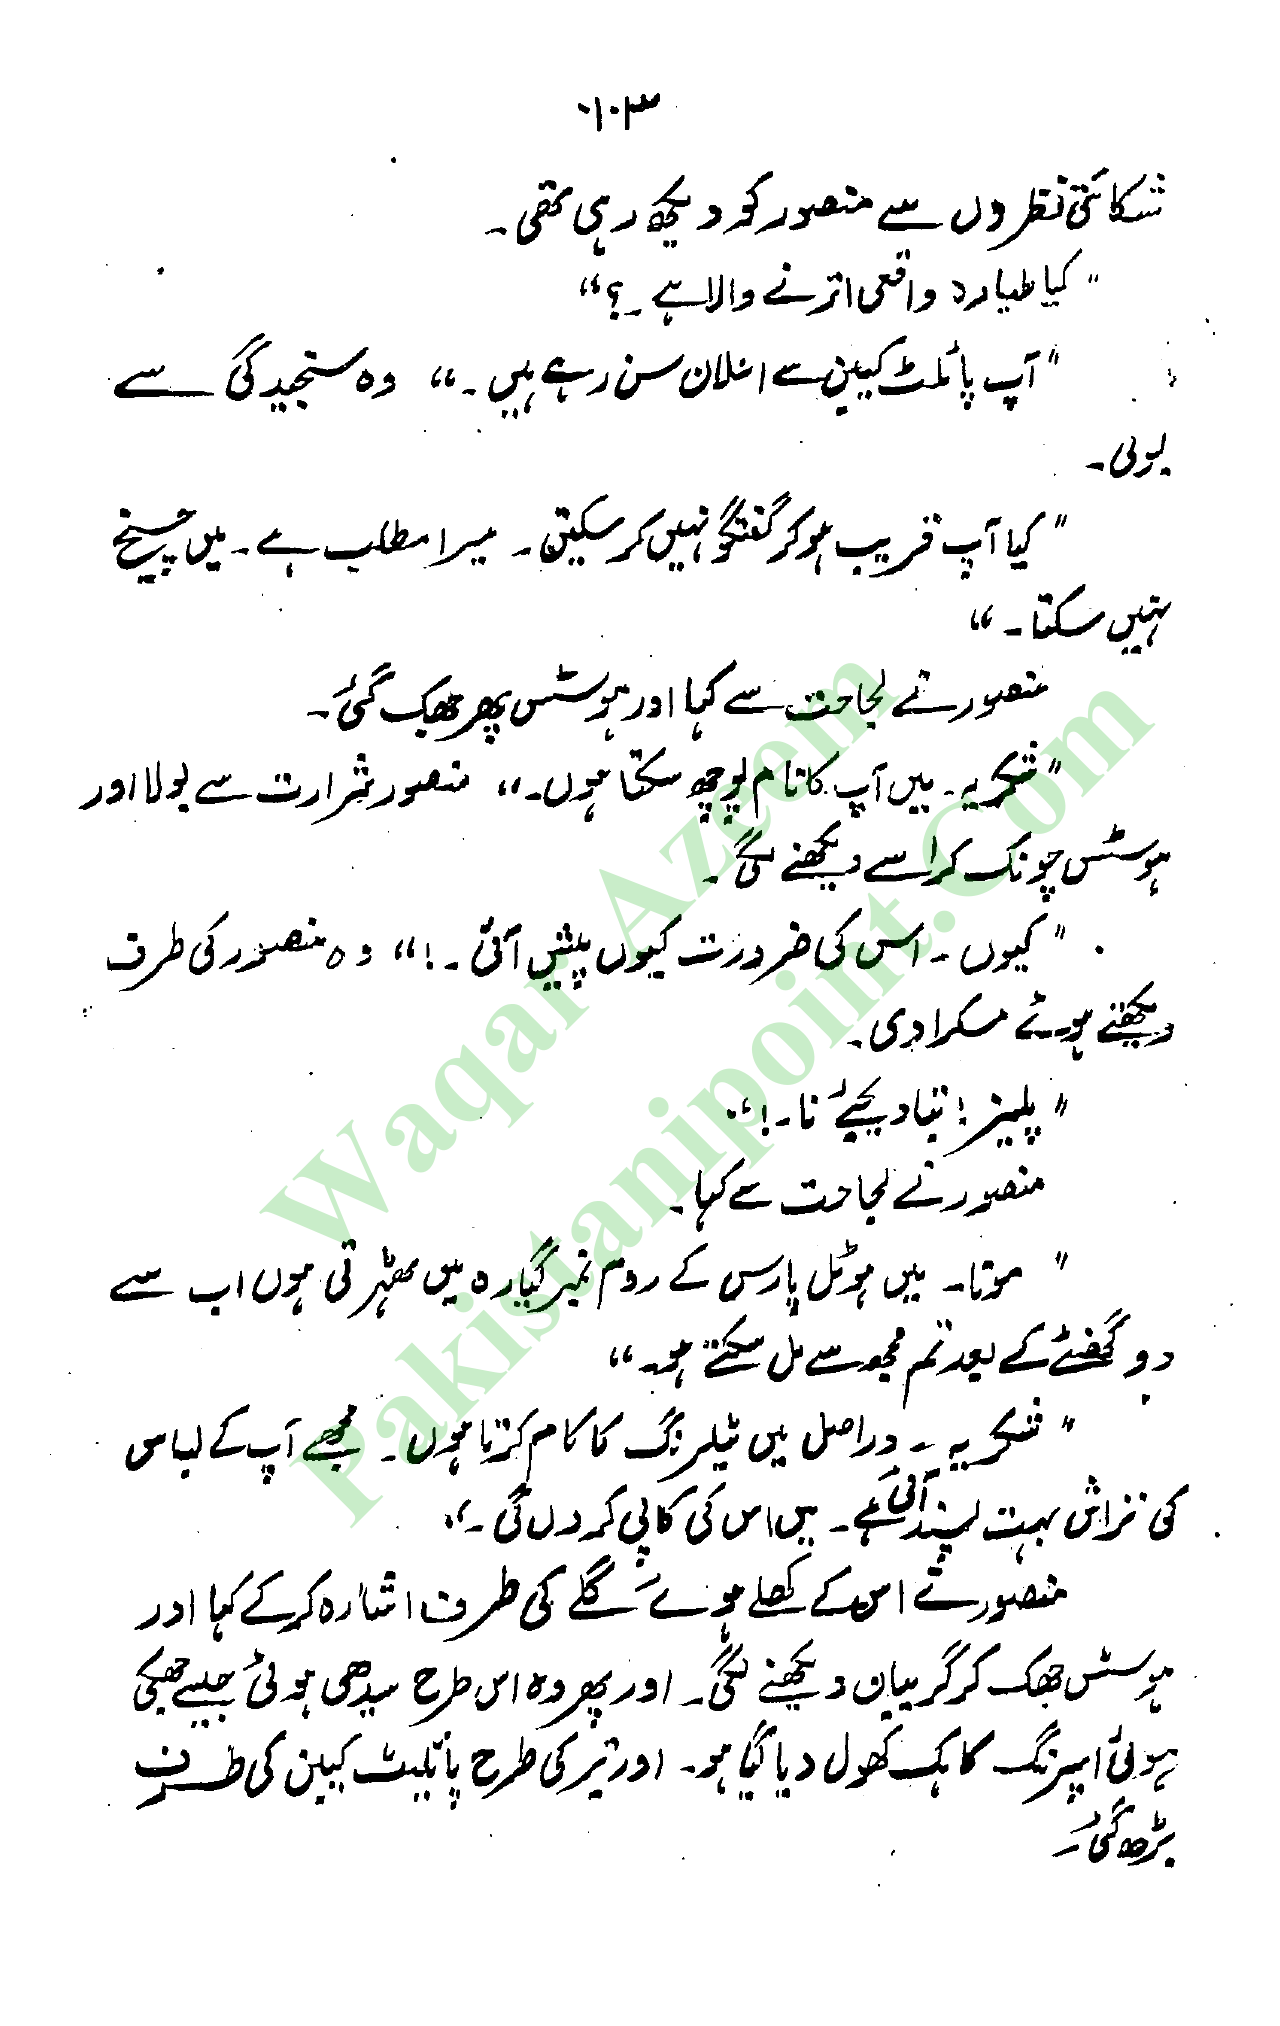 ۱۰۳
شکائتی نظروں سے منصور کو دیکھ رہی تھی۔
"کیا طیارہ واقعی اترنے والا ہے۔؟"
"آپ پائلٹ کیبن سے اعلان سن رہے ہیں۔" وہ سنجیدگی سے
بولی۔
"کیا آپ قریب ہو کر گفتگو نہیں کر سکتیں۔ میرا مطلب ہے۔ میں چیخ
نہیں سکتا۔"
منصور نے لجاحت سے کہا اور ہوسٹس پھر جھک گئی۔
"شکریہ۔ میں آپ کا نام پوچھ سکتا ہوں۔" منصور شرارت سے بولا اور
ہوسٹس چونک کر اسے دیکھنے لگی۔
"کیوں۔ اس کی ضرورت کیوں پیش آئی۔!" وہ منصور کی طرف
دیکھتے ہوئے مسکرا دی۔
"پلیز! بتا دیجئے نا۔!"
منصور نے لجاحت سے کہا۔
"موتا۔ میں ہوٹل پارس کے روم نمبر گیارہ میں ٹھہرتی ہوں اب سے
دو گھنٹے کے بعد تم مجھ سے مل سکتے ہو۔"
"شکریہ۔ دراصل میں ٹیلرنگ کا کام کرتا ہوں۔ مجھے آپ کے لباس
کی تراش بہت پسند آئی ہے۔ میں اس کی کاپی کر دں گی۔"
منصور نے اس کے کھلے ہوئے گلے کی طرف اشارہ کر کے کہا اور
ہوسٹس جھک کر گریبان دیکھنے لگی۔ اور پھر وہ اس طرح سیدھی ہوئی جیسے جھکی
ہوئی اسپرنگ کا ہک کھول دیا گیا ہو۔ اور تیر کی طرح پائلیٹ کیبن کی طرف
بڑھ گئی۔
Waqar Azeem
Pakistanipoint.Com